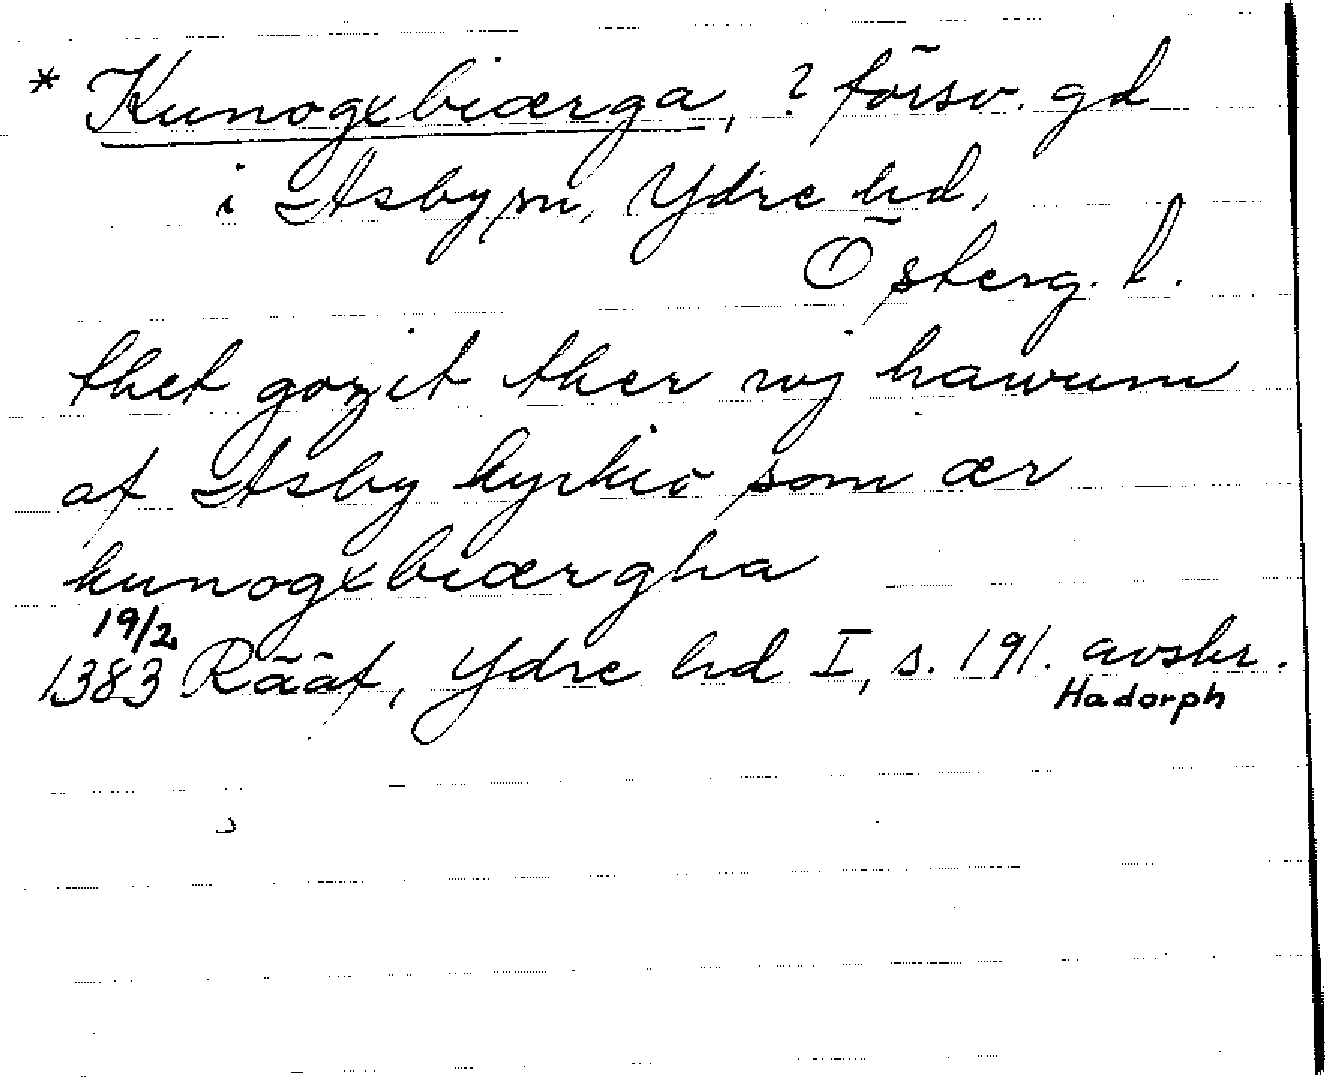 * Kunogxbiærga, ? försv. gd
i Asby sn, Ydre hd,
Österg. l.
thet gozit ther wj hawum
af Asby kyrkio som ær
kunogxbiærgha
19/2
1383 Rääf, Ydre hd I, s. 191. avskr.
Hadorph